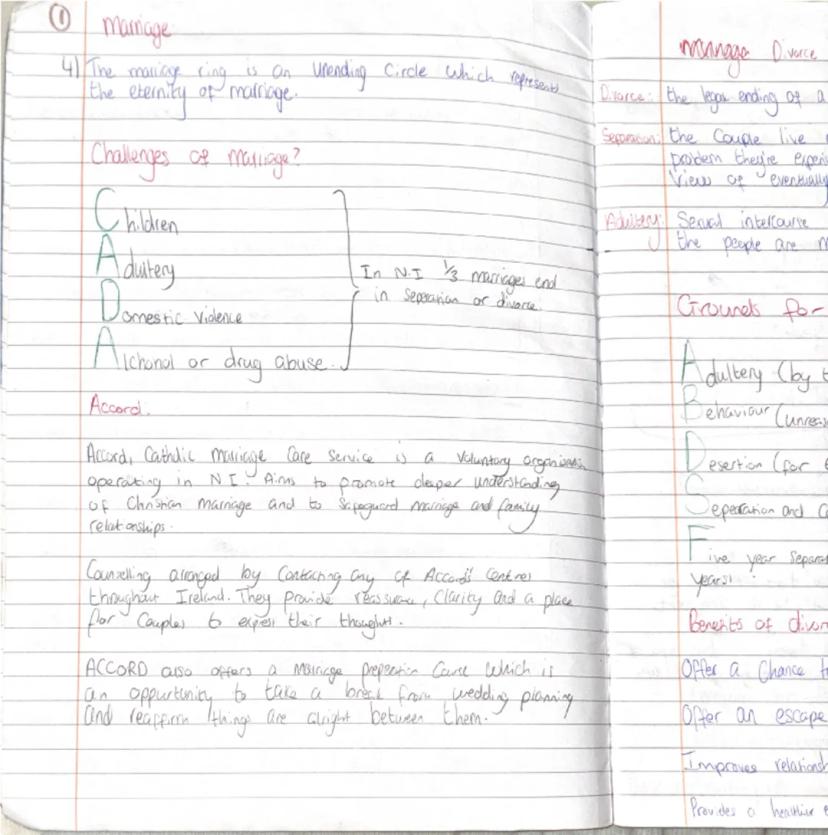 1
Marriage
4) The marriage ring is an unending Circle which represents
the eternity of marriage.
Challenges of marriage?
Children
Adultery
Domestic violence
Alchohol or drug abuse.
In N.I 1/3 marriages end
in Seperation or divorce.
Accord.
Accord, Catholic marriage Care Service is a voluntary organisation
operating in N I. Aims to promote deeper understanding
of Christian marriage and to Safeguard marriage and family
relationships.
Counselling arranged by Contacting any of Accord's Centres
throughout Ireland. They provide reassurance, Clarity and a place
for Couples to express their thoughts.
ACCORD also offers a Marriage preperation Course which is
an oppurtunity to take a break from wedding planning
and reaffirm things are alright between them.
Divorce
Divorce: the legal ending of a
Separation: the Couple live
problem they're
View of eventually
Adultery: Sexual intercourse
the people are
Grounds for
Adultery (by
Behaviour (
Desertion (for
Seperation and
Five year
years)
Benefits of
Offer a Chance
Offer an escape
Improves
Provides a healthier